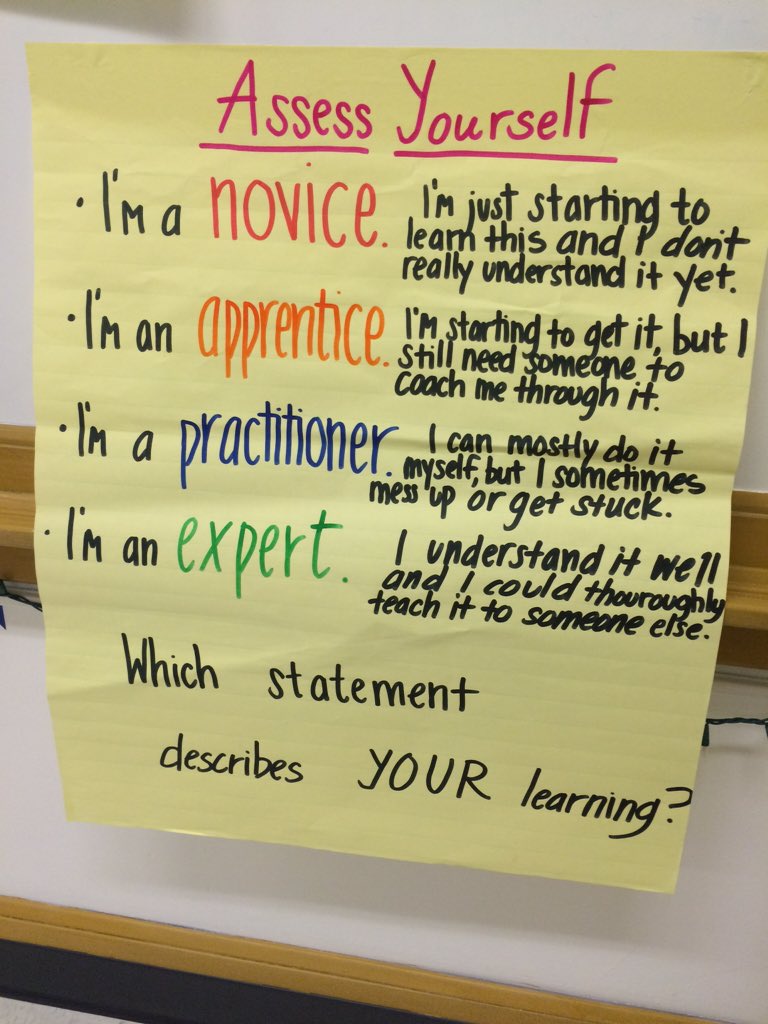 Assess Yourself
· I'm a novice. I'm just starting to
learn this and I don't
really understand it yet.
· I'm an apprentice. I'm starting to get it, but I
still need someone to
coach me through it.
· I'm a practitioner. I can mostly do it
myself, but I sometimes
mess up or get stuck.
· I'm an expert. I understand it well
and I could thouroughly
teach it to someone else.
Which statement
describes YOUR learning?